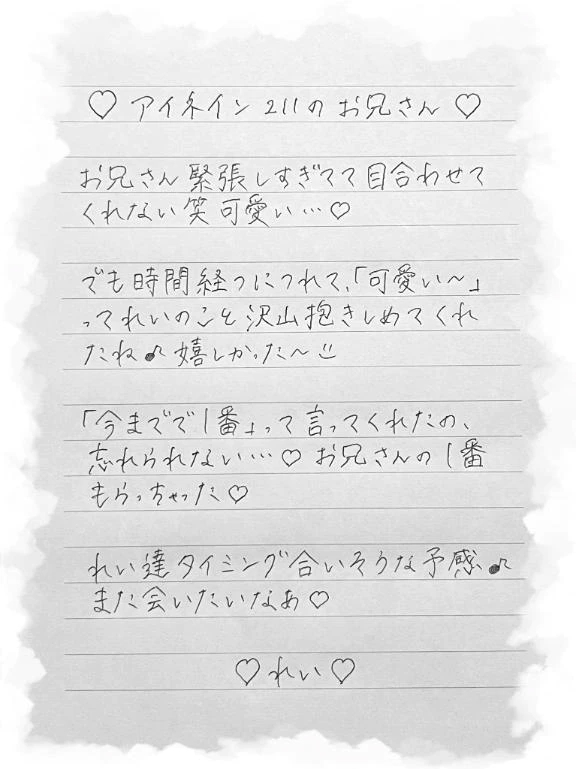 ♡ アイネイン 211の お兄さん ♡
お兄さん 緊張しすぎてて 目合わせて
くれない笑 可愛い…♡
でも時間経つにつれて、「可愛い〜」
ってれいのこと沢山抱きしめてくれ
たね♪ 嬉しかった〜
「今までで1番」って言ってくれたの、
忘れられない…♡ お兄さんの1番
もらっちゃった♡
れい達タイミング合いそうな予感♪
また会いたいなあ♡
♡ れい ♡